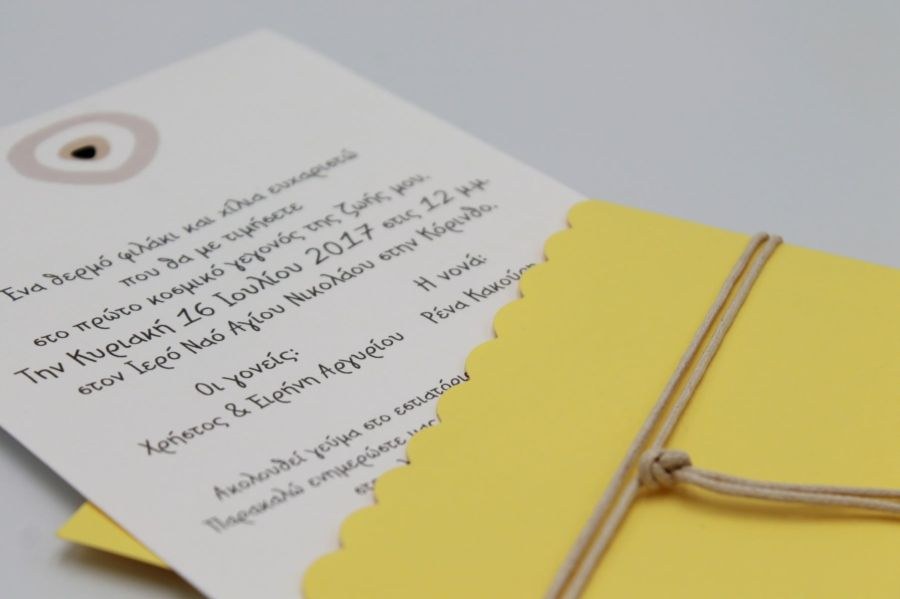 Ένα θερμό φιλάκι και χίλια ευχαριστώ
που θα με τιμήσετε
στο πρώτο κοσμικό γεγονός της ζωής μου.
Την Κυριακή 16 Ιουλίου 2017 στις 12 μ.μ.
στον Ιερό Ναό Αγίου Νικολάου στην Κόρινθο.
Οι γονείς:
Χρήστος & Ειρήνη Αργυρίου
Η νονά:
Ρένα
Ακολουθεί γεύμα στο
Παρακαλώ ενημερώστε μας